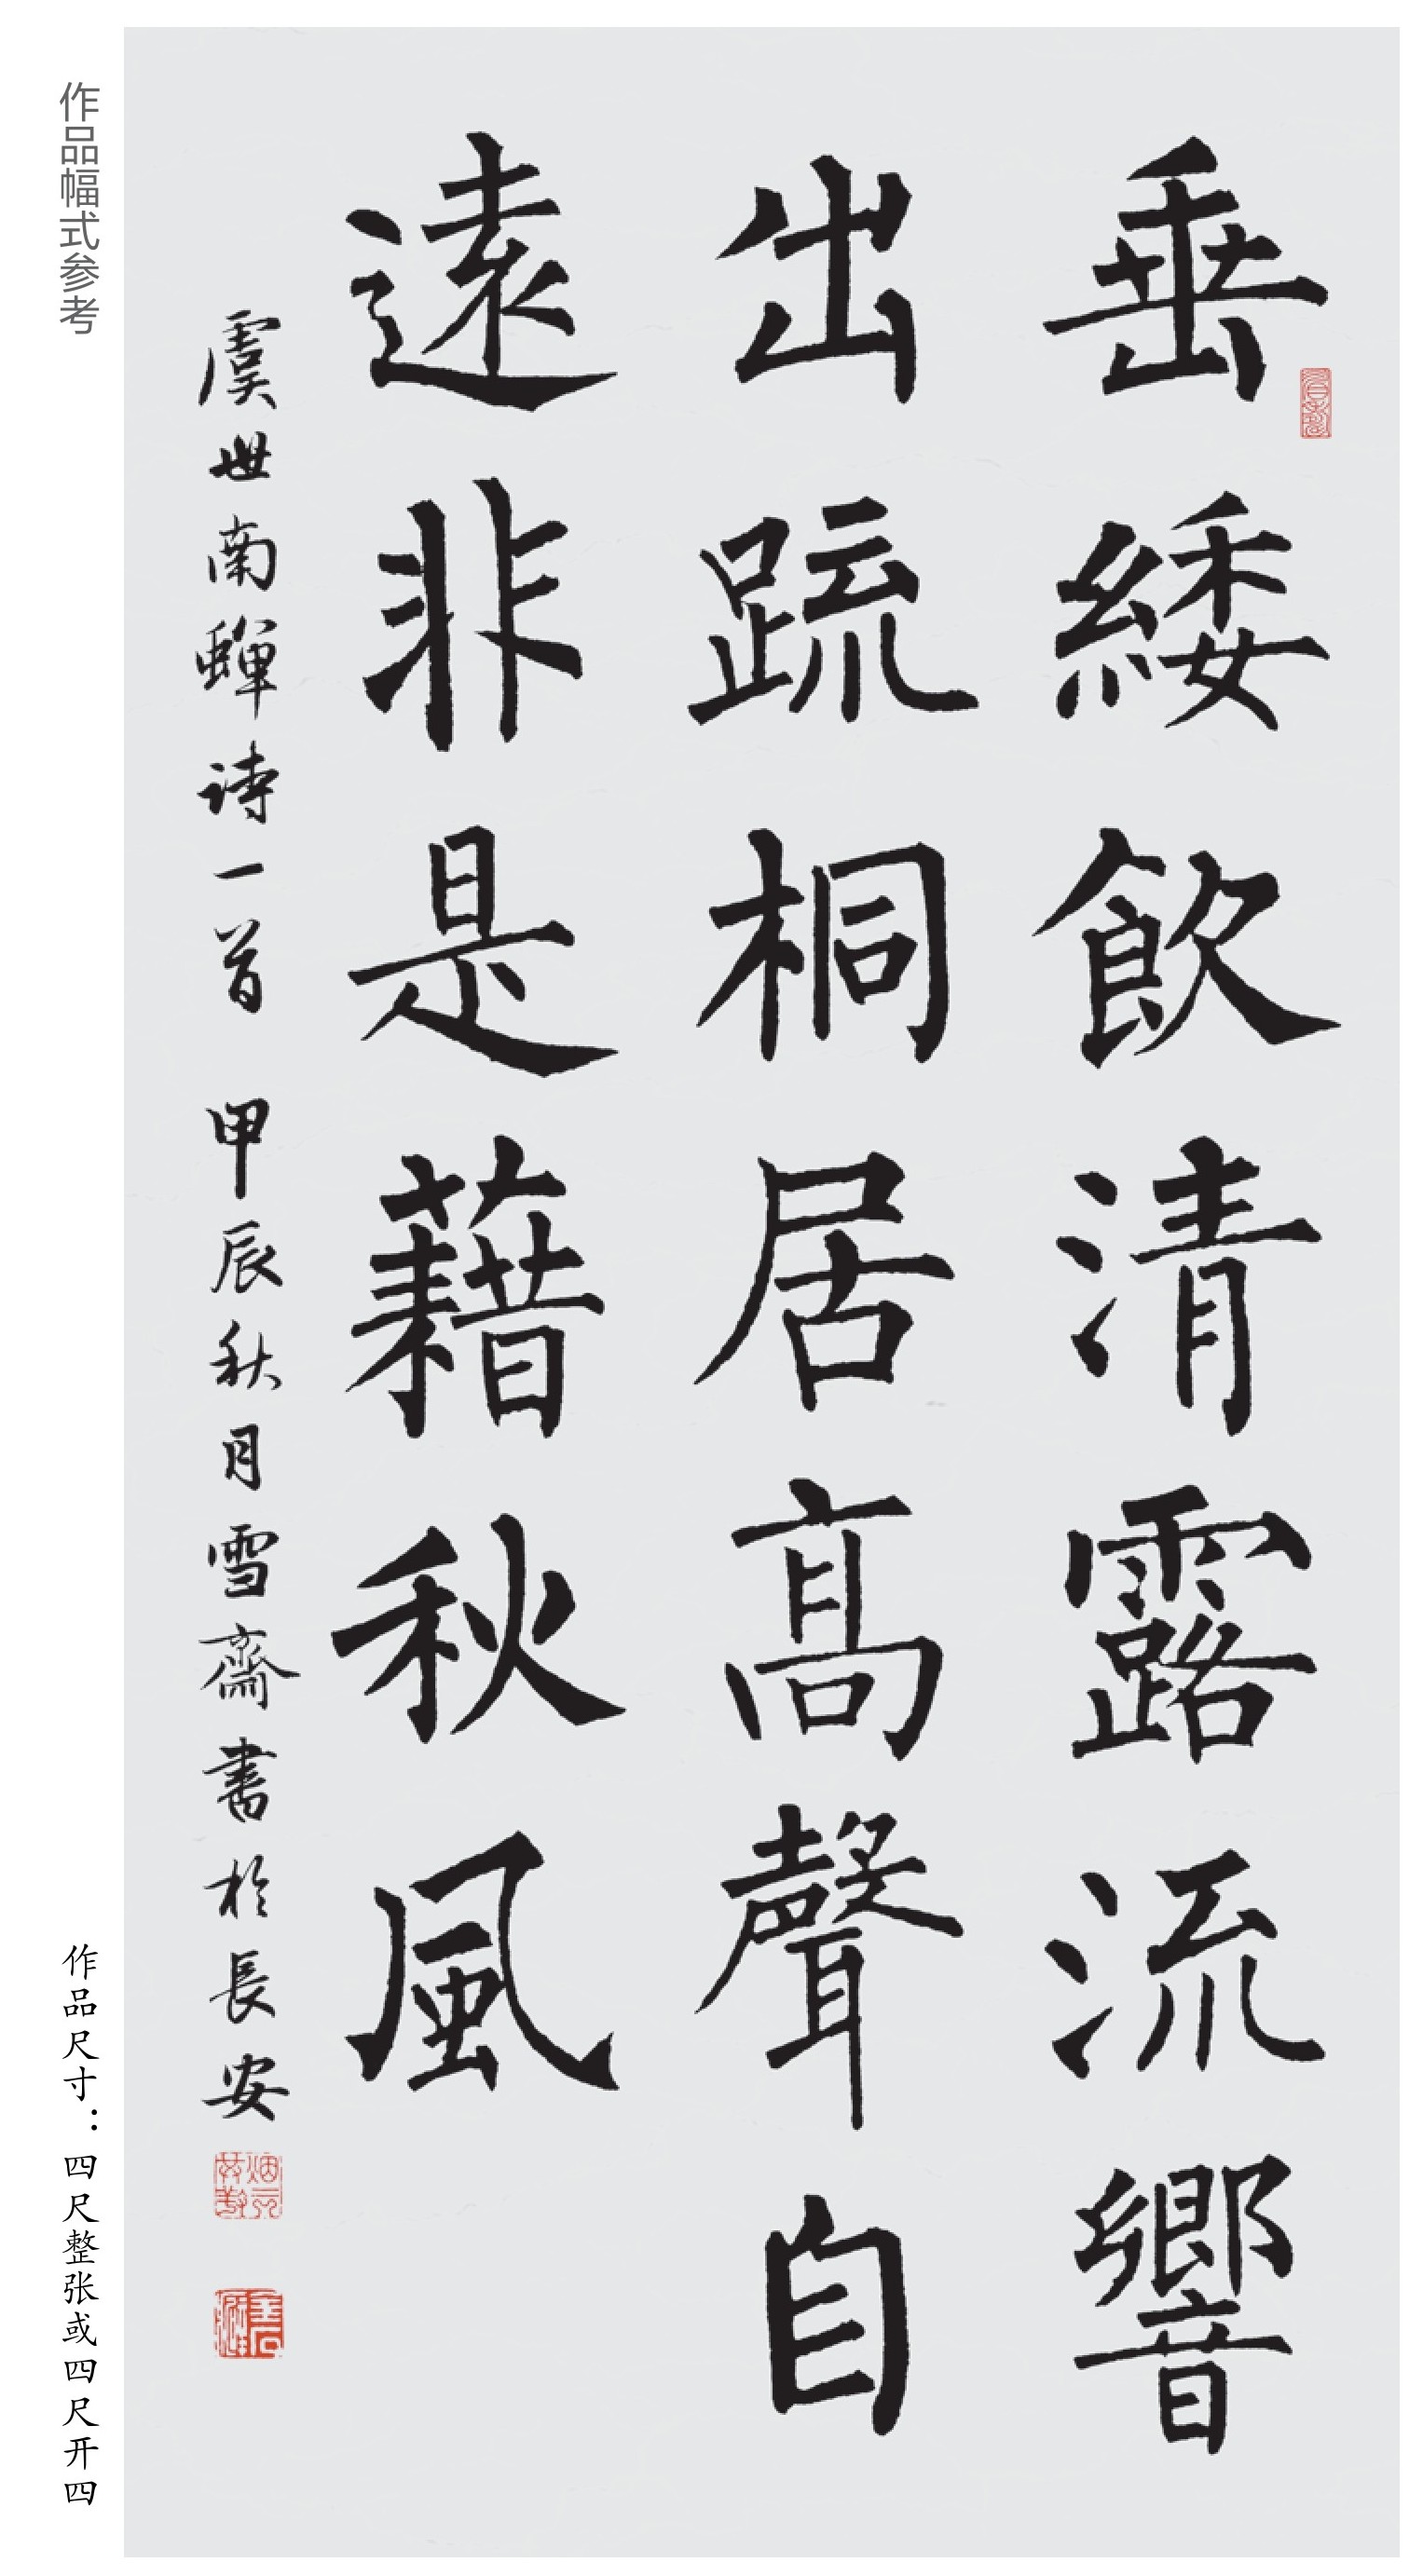 垂緌飲清露流響
出疏桐居高聲自
遠非是藉秋風
虞世南蟬诗一首 甲辰秋月雪齋書於長安
作品幅式参考
作品尺寸：四尺整张或四尺开四